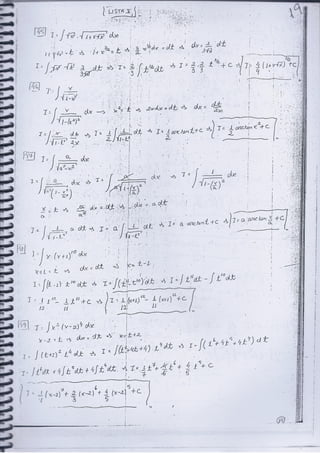 LISTA I
19
45) I = ∫√x · √(1+x√x) dx
1+x√x = t ⇒ 1+x^(3/2) = t ⇒ 3/2 x^(1/2) dx = dt ⇒ dx = 2/(3√x) dt
I = ∫√x · √t 2/(3√x) dt ⇒ I = 2/3 ∫t^(1/2) dt ⇒ I = 2/3 · 2/3 t^(3/2) + C ⇒ I = 4/9 (1+x√x)^(3/2) + C
46) I = ∫ x/√(1-x⁴)
I = ∫ x/√(1-(x²)²) dx → x² = t ⇒ 2xdx = dt ⇒ dx = dt/2x
I = ∫ x/√(1-t²) dt/2x ⇒ I = 1/2 ∫ 1/√(1-t²) dt ⇒ I = 1/2 arcsen t + C ⇒ I = 1/2 arcsen x² + C
47) I = ∫ a/√(a²-x²) dx
I = ∫ a/√(a²(1-x²/a²)) dx ⇒ I = ∫ a/(a√(1-(x/a)²)) dx ⇒ I = ∫ 1/√(1-(x/a)²) dx
I = ∫ 1/√(1-t²) a dt ⇒ I = a ∫ 1/√(1-t²) dt ⇒ I = a arcsen t + C ⇒ I = a arcsen x/a + C
48) I = ∫ x·(x+1)¹⁰ dx
x+1 = t ⇒ dx = dt ⇒ x = t-1
I = ∫(t-1) t¹⁰ dt ⇒ I = ∫(t¹¹-t¹⁰) dt ⇒ I = ∫t¹¹ dt - ∫t¹⁰ dt
I = 1/12 t¹² - 1/11 t¹¹ + C ⇒ I = 1/12 (x+1)¹² - 1/11 (x+1)¹¹ + C
49) I = ∫ x²(x-2)⁴ dx
x-2 = t ⇒ dx = dt ⇒ x = t+2
I = ∫(t+2)² t⁴ dt ⇒ I = ∫(t²+4t+4) t⁴ dt ⇒ I = ∫(t⁶+4t⁵+4t⁴) dt
I = ∫t⁶ dt + 4∫t⁵ dt + 4∫t⁴ dt ⇒ I = 1/7 t⁷ + 4/6 t⁶ + 4/5 t⁵ + C
I = 1/7 (x-2)⁷ + 2/3 (x-2)⁶ + 4/5 (x-2)⁵ + C